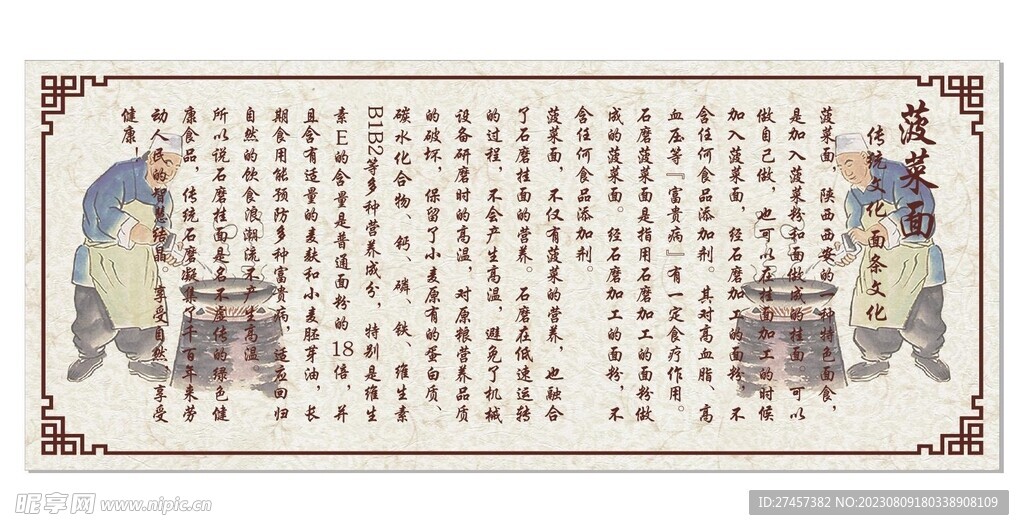 菠菜面
传统文化面条文化
菠菜面，陕西西安的一种特色面食，
是加入菠菜粉和面做成的挂面。可以
做自己做，也可以在挂面加工的时候
加入菠菜面，经石磨加工的面粉，不
含任何食品添加剂。其对高血脂、高
血压等『富贵病』有一定食疗作用。
石磨菠菜面是指用石磨加工的面粉做
成的菠菜面。经石磨加工的面粉，不
含任何食品添加剂。
菠菜面，不仅有菠菜的营养，也融合
了石磨挂面的营养。石磨在低速运转
的过程，不会产生高温，避免了机械
设备研磨时的高温，对原粮营养品质
的破坏，保留了小麦原有的蛋白质、
碳水化合物、钙、磷、铁、维生素
B1B2等多种营养成分，特别是维生
素E的含量是普通面粉的18倍，并
且含有适量的麦麸和小麦胚芽油，长
期食用能预防多种富贵病，适应回归
自然的饮食浪潮流不产生高温
所以说石磨挂面是名不虚传的绿色健
康食品，传统石磨凝集了千百年来劳
动人民的智慧结晶。享受自然，享受
健康！
昵享网 www.nipic.cn
ID:27457382 NO:20230809180338908109